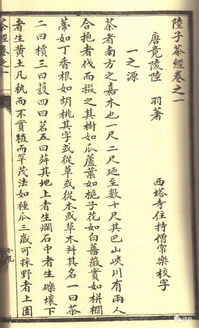 陸子茶經卷之一
唐竟陵陸 羽著
西塔寺住持僧常樂校字
一之源
茶者南方之嘉木也一尺二尺迺至數十尺其巴山峽川有兩人
合抱者伐而掇之其樹如瓜蘆葉如梔子花如白薔薇實如栟櫚
蒂如丁香根如胡桃其字或從草或從木或草木并其名一曰茶
二曰檟三曰蔎四曰茗五曰荈其地上者生爛石中者生礫壤下
者生黃土凡蓺而不實植而罕茂法如種瓜三歲可採野者上園
茶經卷之一